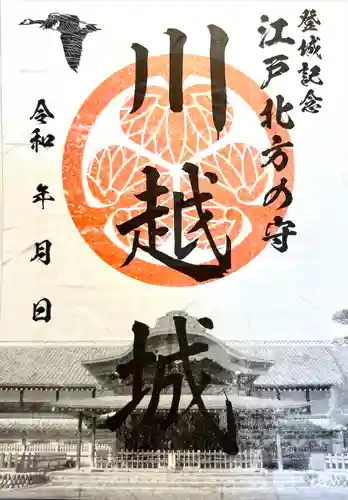 登城記念
江戸北方の守
川越城
令和 年 月 日